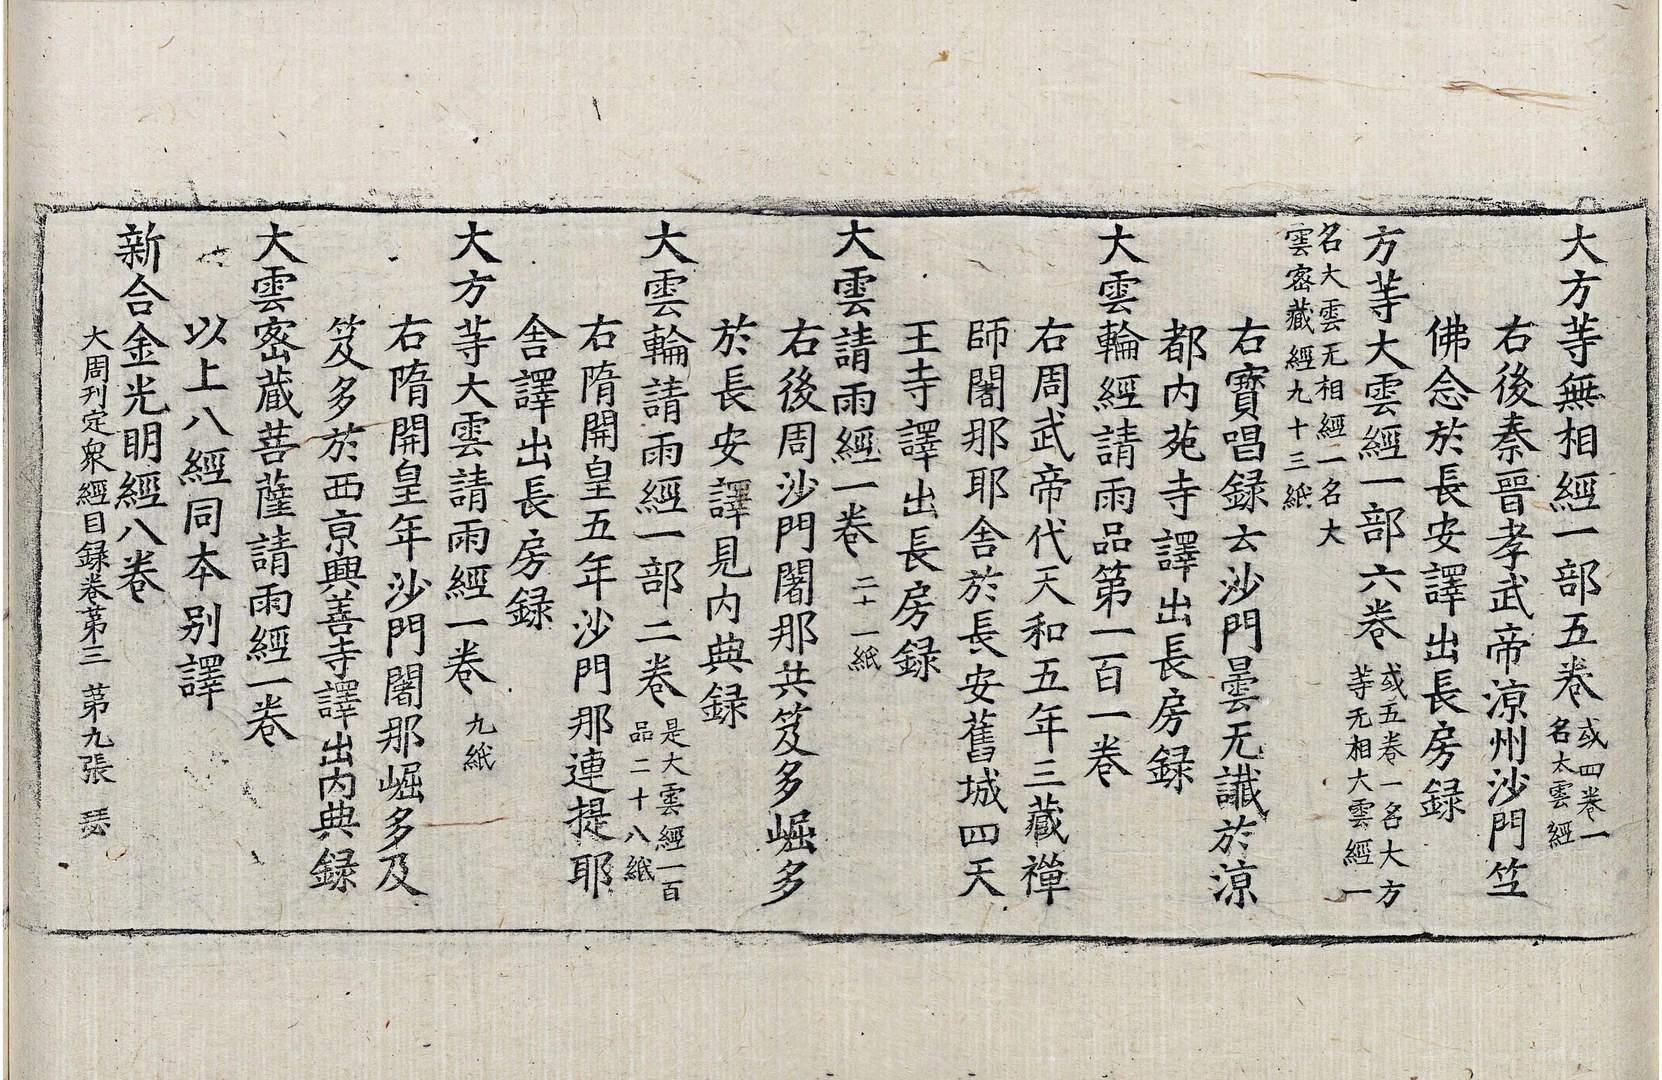 大方等無相經一部五卷或四卷一
名大雲經
右後秦晉孝武帝涼州沙門竺
佛念於長安譯出長房録
方等大雲經一部六卷或五卷一名大方
等无相大雲經一
名大雲无相經一名大
雲密藏經九十三紙
右寶唱録云沙門曇无讖於涼
都内苑寺譯出長房録
大雲輪經請雨品第一百一卷
右周武帝代天和五年三藏禪
師闍那耶舍於長安舊城四天
王寺譯出長房録
大雲請雨經一卷二十一紙
右後周沙門闍那共笈多崛多
於長安譯見内典録
大雲輪請雨經一部二卷是大雲經一百
品二十八紙
右隋開皇五年沙門那連提耶
舍譯出長房録
大方等大雲請雨經一卷九紙
右隋開皇年沙門闍那崛多及
笈多於西京興善寺譯出内典録
大雲密蔵菩薩請雨經一卷
以上八經同本别譯
新合金光明經八卷
大周刊定衆經目録卷第三 第九張 瑟